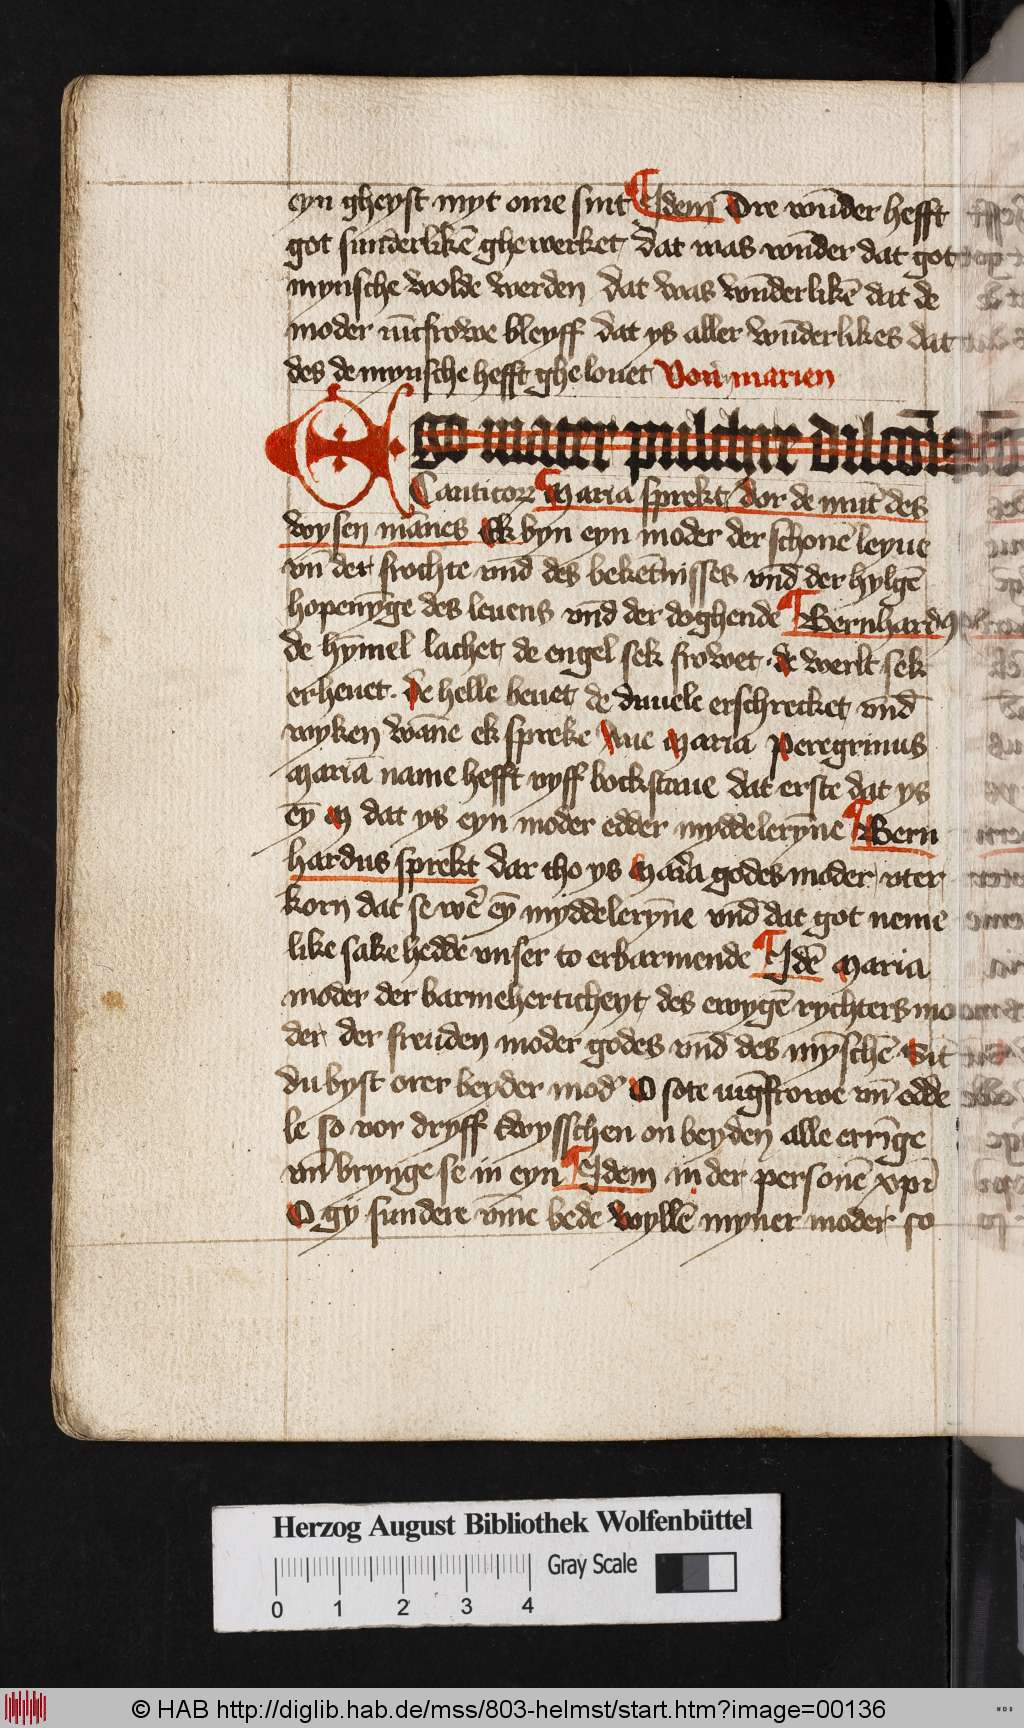 eyn gheyst myt ome sint Idem Dre wūder hefft
got sunderlikē ghewerket dat was wūder dat got
mynsche wolde werden dat was wūderlikē dat de
moder iūcfrowe bleyff dat ys aller wūderlikes dat
des de mynsche hefft ghelouet Von marien
Ego mater pulchre dilcōis
Canticorz Maria sprekt dor de mūt des
wysen mānes Ek byn eyn moder der schonē leyue
vn̄ der frochte vnd des bekētnisses vnd der hylgē
hopenȳge des leuens vnd der doghende Bernhard9
de hȳmel lachet de engel sek frowet de werlt sek
erheuet De helle beuet de duuele erschrecket vnd
wyken wāne ek spreke Aue Maria Peregrinus
Mariā name hefft vyff bockstaue dat erste dat ys
eȳ M dat ys eyn moder edder myddelerȳne Bern
hardus sprekt dar tho ys Maria godes moder vter
korn dat se wē eȳ myddelerȳne vnd dat got neme
like sake hedde vnser to erbarmende Idē Maria
moder der barmeherticheyt des ewygē rychters mo
der der freuden moder godes vnd des mȳschē Sūt
du byst orer beyder mod O sote iūgfrowe vn̄ edde
le so vor dryff twysschen on beyden alle errīge
vn̄ brynge se in eyn Idem in der personē xpī
O gy sundere vm̄e bede wyllē myner moder so
Herzog August Bibliothek Wolfenbüttel
Gray Scale
0 1 2 3 4
© HAB http://diglib.hab.de/mss/803-helmst/start.htm?image=00136